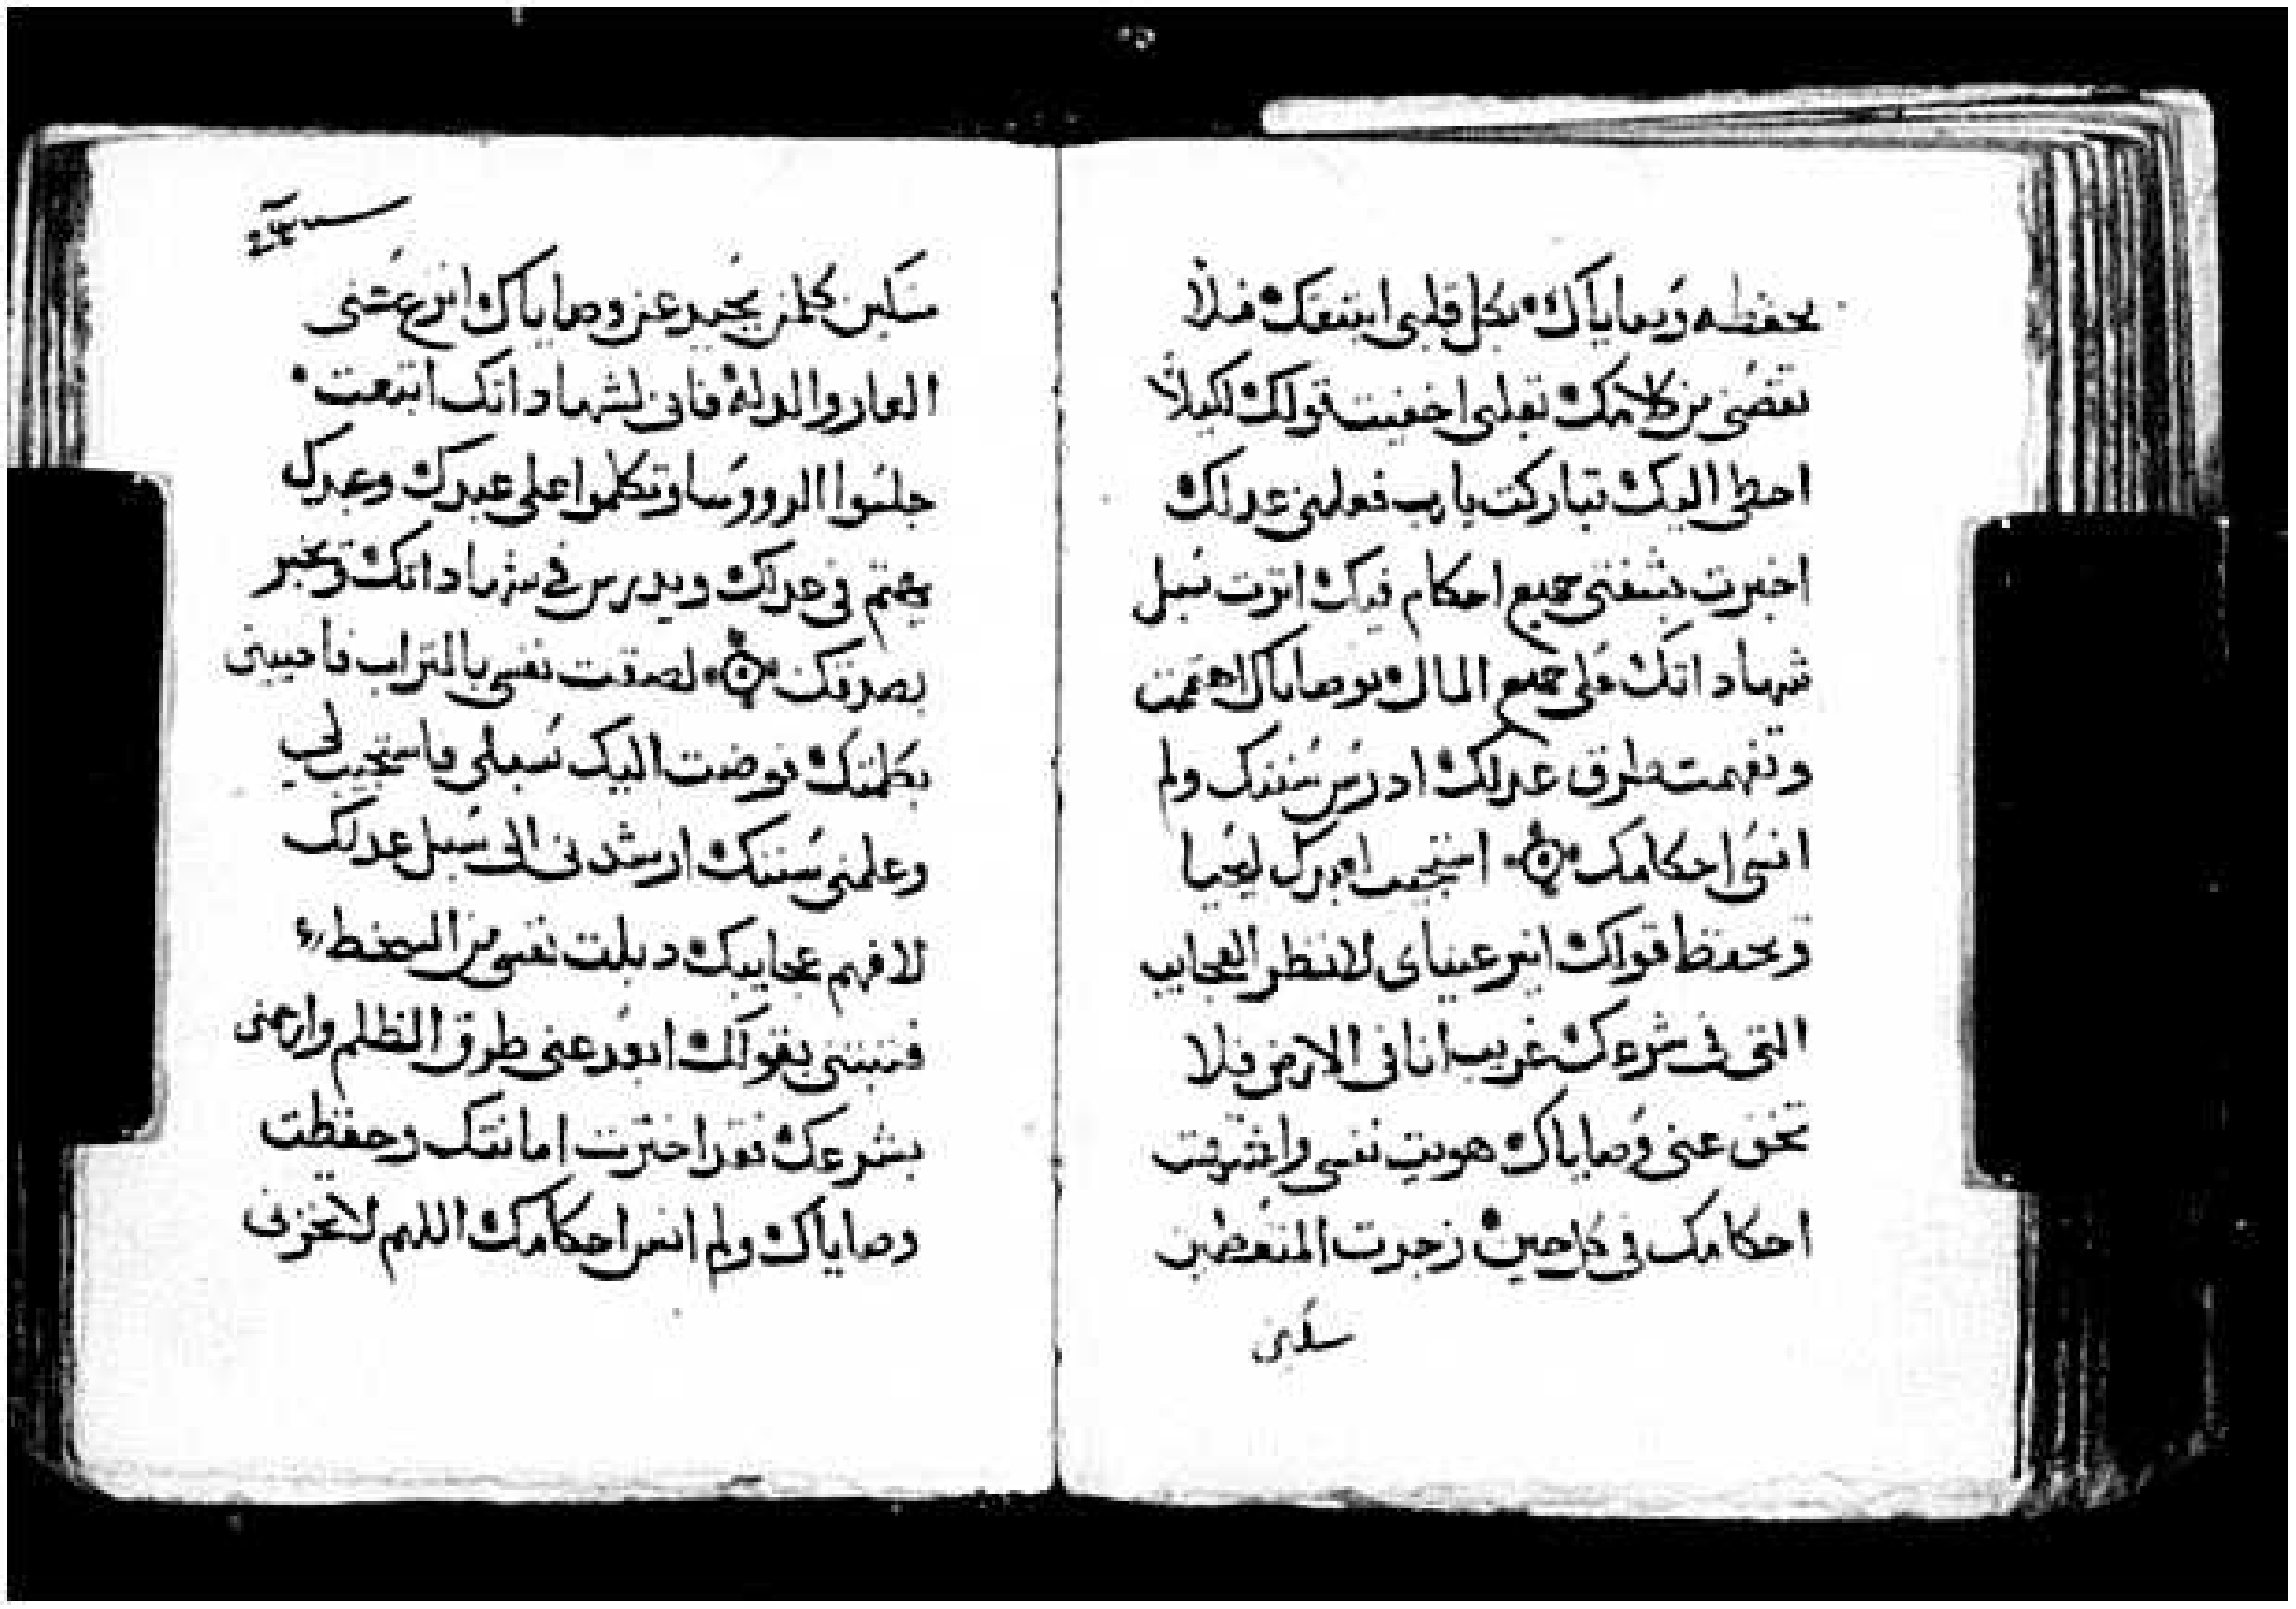 بحفظه وصاياك بكل قلبى ابتغتك فلا
تقصنى من كلامك بقلبى اخفيت قولك لكيلا
اخطى اليك تباركت يا رب فعلمنى عدلك
اخبرت بشفتى جميع احكام فيك اثرت سبل
شهاداتك على جميع المال بوصاياك اهتممت
وتفهمت طرق عدلك ادرس سننك ولم
انسى احكامك استجيب لعبدك ليحيا
ويحفظ قولك انير عيناى لانظر العجايب
التى فى شرعك غريب انا فى الارض فلا
تخف عنى وصاياك هويت نفسى واشتهت
احكامك فى كل حين زجرت المتعظمين
مساكين كلمن يحيد عن وصاياك انزع عنى
العار والمذلة فانى لشهاداتك ابتغت
جلسوا الروسا وتكلموا على عبدك وعبدك
يهتم فى عدلك ويدرس فى شهاداتك ويخبر
بصدقك لصقت نفسى بالتراب فأحيينى
بكلمتك فوضت اليك سبلى فاستجيب لى
وعلمنى سننك ارشدنى الى سبل عدلك
لافهم عجايبك دبلت نفسى من السخط
فثبتنى بقولك ابعد عنى طرق الظلم وارحمنى
بشرعك فقد اخترت امانتك وحفظت
وصاياك ولم انس احكامك اللهم لا تخزنى